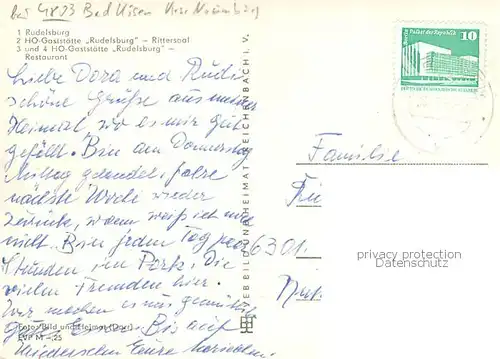 bei 4803 Bad Kösen Krs. Naumburg
1 Rudelsburg
2 HO-Gaststätte „Rudelsburg" – Rittersaal
3 und 4 HO-Gaststätte „Rudelsburg" –
Restaurant
Liebe Dora und Rudi
schöne Grüße aus meiner
Heimat, wo es mir gut
gefällt. Bin am Donnerstag
Mittag gelandet, fahre
nächste Woche wieder
zurück, wann weiß ich noch
nicht. Bin jeden Tag paar
Stunden im Park, Die
vielen Fremden hier.
Wir machen es uns gemütlich
Bis auf
Wiedersehen Eure
Foto: Bild und Heimat
EVP M –,25
VEB BILD UND HEIMAT REICHENBACH I. V.
Berlin Palast der Republik
10
Familie
6301
privacy protection
Datenschutz